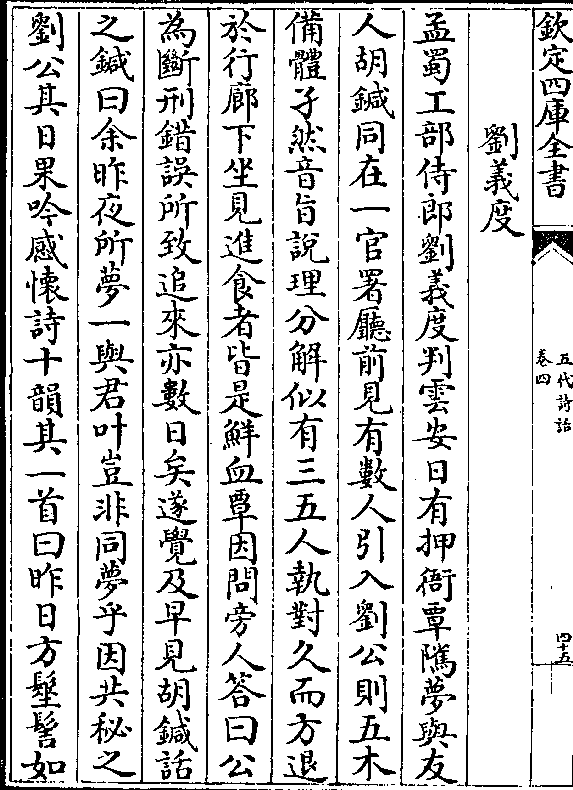 欽定四庫全書
五代詩話
卷四
四十五
劉義度
孟蜀工部侍郎劉義度判雲安日有押衙覃隲夢與友
人胡鍼同在一官署廳前見有數人引入劉公則五木
備體孑然音旨說理分解似有三五人執對久而方退
於行廊下坐見進食者皆是鮮血覃因問旁人答曰公
為斷刑錯誤所致追來亦數日矣遂覺及早見胡鍼話
之鍼曰余昨夜所夢一與君叶豈非同夢乎因共秘之
劉公其日果吟感懷詩十韻其一首曰昨日方髽髻如